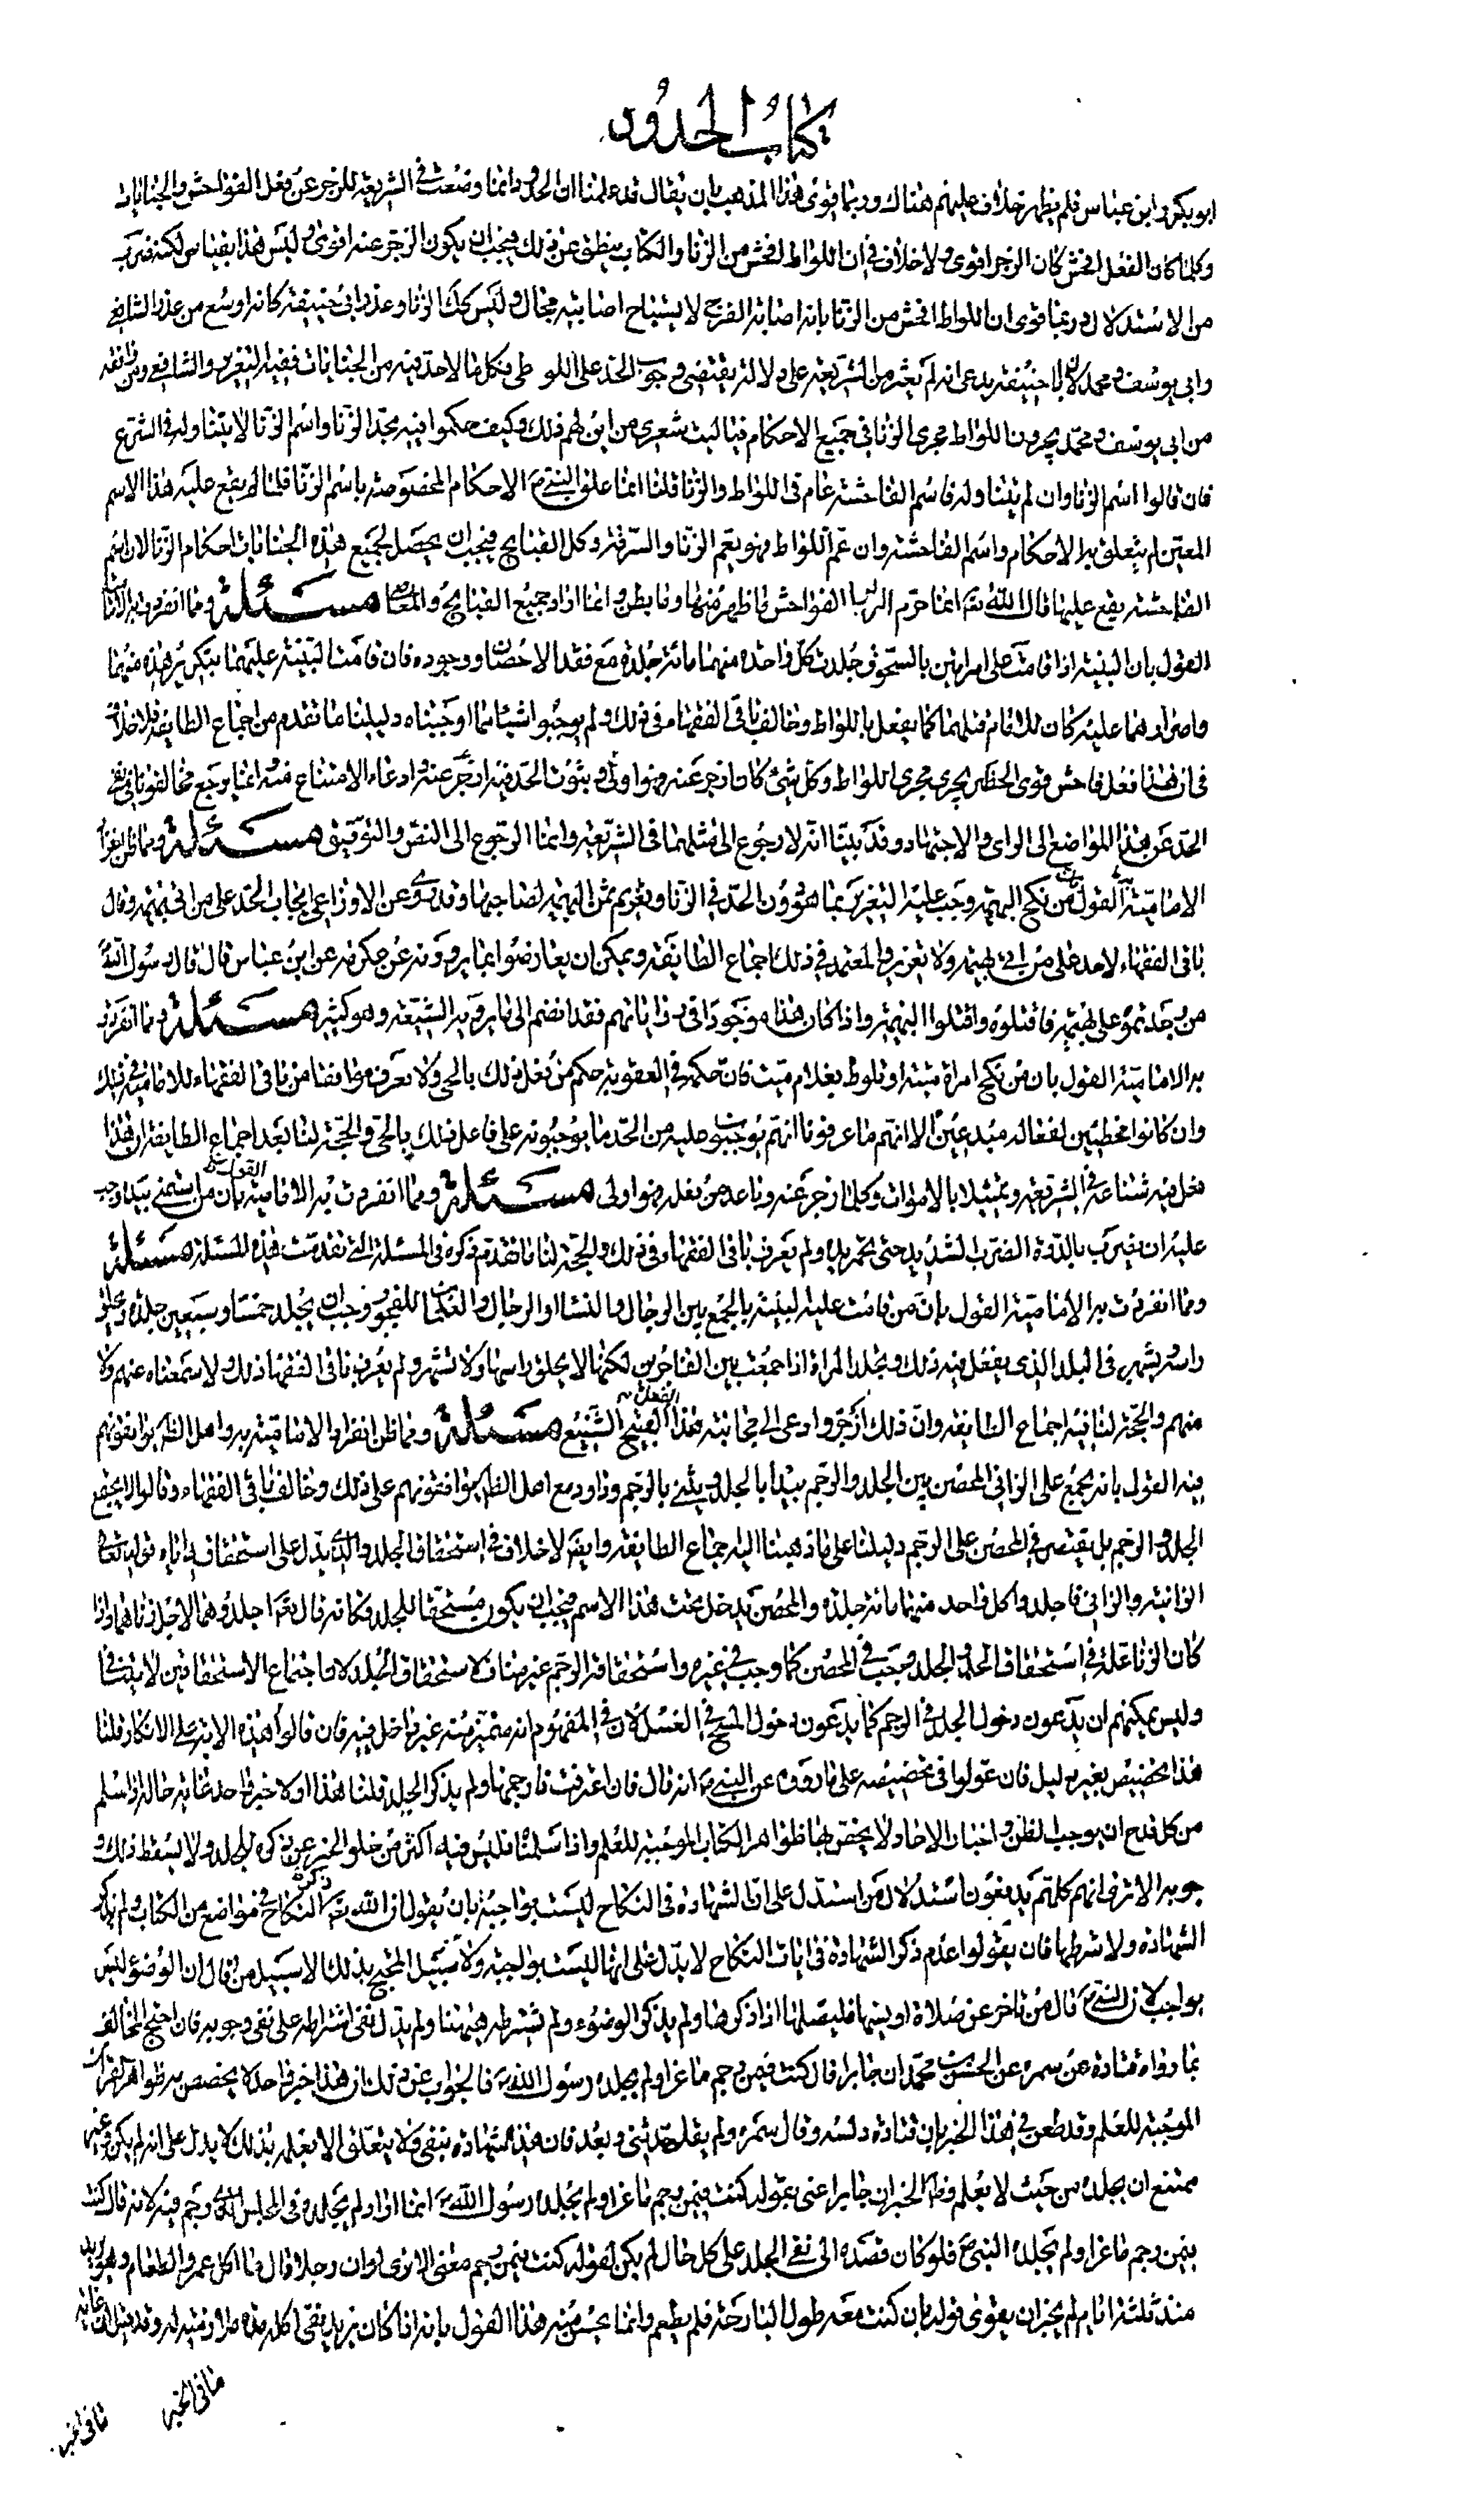 كتاب الحدود
ابو بكر وابن عباس فلم يظهر خلاف عليهم هناك وربما قوى هذا المذهب بان يقال قد علمنا ان الحدود انما وضعت في الشريعة للزجر عن فعل الفواحش والجنايات
وكلما كان الفعل افحش كان الزجر اقوى ولا خلاف في ان اللواط افحش من الزنا والكتاب ينطق عن ذلك فيجب ان يكون الزجر عنه اقوى وليس هذا بقياس لكنه ضرب
من الاستدلال وربما قوى ان اللواط افحش من الزنا بانه اصابة الفرج لا يستباح اصابته بحال وليس كك الزنا وعذر ابى حنيفة كانه اوسع من عذر الشافعي
وابي يوسف ومحمد لان ابا حنيفة يدعى انه لم يعثر من الشريعة على دلالة يقتضى وجوب الحد على اللوطى فكل ما لا حد فيه من الجنايات ففيه التعزير والشافعي ومن وافقه
من ابى يوسف ومحمد يجرون اللواط مجرى الزنا في جميع الاحكام فيا ليت شعرى من اين لهم ذلك وكيف حكموا فيه بحد الزنا واسم الزنا لا يتناوله في الشرع
فان قالوا اسم الزنا وان لم يتناوله فاسم الفاحشة عام في اللواط والزنا قلنا انما علق النبي ص الاحكام المخصوصة باسم الزنا فلما لم يقع عليه هذا الاسم
المعين لم يتعلق به الاحكام واسم الفاحشة وان عم اللواط فهو يعم الزنا والسرقة وكل القبايح فيجب ان يحصل لجميع هذه الجنايات احكام الزنا لان اسم
الفاحشة يقع عليها قال الله تع انما حرم ربى الفواحش ما ظهر منها وما بطن وانما اراد جميع القبايح والمعاصي مسئلة ومما انفردت به الامامية
القول بان البينة اذا قامت على امراتين بالسحق جلدت كل واحدة منهما مائة جلدة مع فقد الاحصان ووجوده فان قامت البينة عليهما بتكرير هذه منهما
واصرارهما عليه كان للامام قتلهما كما يفعل باللواط وخالف باقى الفقهاء في ذلك ولم يوجبوا شيئا مما اوجبناه دليلنا ما تقدم من اجماع الطايفة فلا خلاف
في ان هذا فعل فاحش قوى الحظر يجرى مجرى اللواط وكل شئ كان ازجر عنه فهو اولى وثبوت الحد فيه ازجر عنه وادعاء الامتناع منه انما يرجع مخالفونا في نفى
الحد عن هذا المواضع الى الراى والاجتهاد وقد بينا انه لا رجوع الى مثلهما في الشريعة وانما الرجوع الى النص والتوقيف مسئلة ومما ظن انفراد
الامامية به القول بان من نكح البهيمة وجب عليه التعزير بما هو دون الحد في الزنا وتغريم ثمن البهيمة لصاحبها وقد روى عن الاوزاعي ايجاب الحد على من اتى بهيمة وقال
باقى الفقهاء لا حد على من اتى بهيمة ولا تعزير والمعتمد في ذلك اجماع الطايفة ويمكن ان يعارضوا بما يروونه عن عكرمة عن ابن عباس قال قال رسول الله
من وجدتموه على بهيمة فاقتلوه واقتلوا البهيمة واذا كان هذا موجودا في رواياتهم فقد انضم الى ما يرويه الشيعة وهو كثير مسئلة ومما انفردت
به الامامية القول بان من نكح امراة ميتة او تلوط بغلام ميت فان حكمه في العقوبة حكم من فعل ذلك بالحى ولا نعرف موافقا من باقى الفقهاء للامامية في ذلك
وان كانوا مخطئين لفعاله مبدعين الا انهم ما عرفونا انهم يوجبون عليه من الحد ما يوجبونه على فاعل ذلك بالحى والحجة لنا بعد اجماع الطايفة ان هذا
فعل فيه شناعة في الشريعة وتمثيلا بالاموات وكلما زجر عنه وباعد من فعله فهو اولى مسئلة ومما انفردت به الامامية القول بان من استمنى بيده وجب
عليه ان يضرب بالدرة الضرب الشديد حتى تحمر يده ولم يعرف باقى الفقهاء في ذلك والحجة لنا ما تقدم ذكره في المسئلة التي تقدمت هذه المسئلة مسئلة
ومما انفردت به الامامية القول بان من قامت عليه البينة بالجمع بين الرجال والنساء او الرجال والغلمان للفجور وجب ان يجلد خمسا وسبعين جلدة ويحلق
راسه ويشهر في البلد الذي يفعل فيه ذلك وتجلد المراة اذا جمعت بين الفاجرين لكنها لا يحلق راسها ولا تشهر ولم يعرف باقى الفقهاء ذلك ولا سمعناه عنهم ولا
منهم والحجة لنا فيه اجماع الطايفة وان ذلك ازجر وادعى الى مجانبة هذا الفعل القبيح الشنيع مسئلة ومما ظن انفراد الامامية به واهل الظاهر يوافقونهم
فيه القول بانه يجمع على الزانى المحصن بين الجلد والرجم يبدا بالجلد ويثنى بالرجم وداود مع اهل الظاهر يوافقونهم على ذلك وخالف باقى الفقهاء وقالوا لا يجتمع
الجلد والرجم بل يقتصر في المحصن على الرجم دليلنا على ما ذهبنا اليه اجماع الطايفة وايضا لا خلاف في استحقاق الجلد والذي يدل على استحقاقه اياه قوله تعالى
الزانية والزاني فاجلدوا كل واحد منهما مائة جلدة والمحصن يدخل تحت هذا الاسم فيجب ان يكون مستحقا للجلد فكانه قال تع اجلدوهما لاجل زناهما واذا
كان الزنا علة في استحقاق الحد والجلد وجب في المحصن كما وجب في غيره واستحقاقه الرجم غير مناف لاستحقاق الجلد لا اجتماع الاستحقاقين لا يتنافى
وليس يمكنهم ان يدعون دخول الجلد في الرجم كما يدعون دخول المسح في الغسل لان في المفهوم انه متميز منه غير داخل فيه فان قالوا هذه الاية على الابكار قلنا
هذا تخصيص بغير دليل فان عولوا في تخصيصه على ما رووه عن النبي ص انه قال فان اعترفت فارجمها ولم يذكر الجلد قلنا هذا اولا خبر واحد غاية حاله اذا سلم
من كل قدح ان يوجب الظن واخبار الاحاد لا يخص بها ظواهر الكتاب الموجبة للعلم واذا سلمناه فليس فيه اكثر من خلو الخبر عن ذكر الجلد ولا يسقط ذلك و
جوبه الا ترى انهم كلهم يدفعون استدلال من استدل على ان الشهادة في النكاح ليست بواجبة بان يقول ان الله تع ذكر النكاح في مواضع من الكتاب ولم يذكر
الشهادة ولا شرطها فان يقولوا عدم ذكر الشهادة في ايات النكاح لا يدل على انها ليست بواجبة ولا سبيل المحتج بذلك الا سبيل من قال ان الوضوء ليس
بواجب لان النبي ص قال من تاخر عن صلاة او نسيها فليصلها اذا ذكرها ولم يذكر الوضوء ولم يشترطه هيهنا ولم يدل نفى اشتراطه على نفى وجوبه فان احتج المخالف
بما رواه قتادة عن سمرة عن الحسن بن محمد ان جابرا قال كنت فيمن رجم ماعزا ولم يجلده رسول الله ص فالجواب عن ذلك ان هذا خبر واحد لا يخصص به ظواهر القران
الموجبة للعلم وقد طعن في هذا الخبر بان قتادة دلسه وقال سمرة ولم يقل حدثني وبعد فان هذه شهادة بنفى ولا يتعلق الا بعلمه بذلك لا يدل على انه لم يكن وغير
ممتنع ان يجلده من حيث لا يعلم وظاهر الخبر ان جابرا عنى بقوله كنت فيمن رجم ماعزا ولم يجلده رسول الله ص انما اراد لم يجلده في المجلس الذي رجم فيه لانه قال كنت
فيمن رجم ماعزا ولم يجلده النبي ص فلو كان قصده الى نفى الجلد على كل حال لم يكن لقوله كنت فيمن رجم معنى الا ترى لو ان رجلا قال ما اكل عمرو الطعام وهو يريد
منذ ثلثة ايام لم يجز ان يقوى قوله بان كنت معه طول البارحة فلم يطعم وانما يحسن منه هذا القول بانه اذا كان يريد نفى اكله مدة ملازمته له
ما في الخبر
ما في الخبر